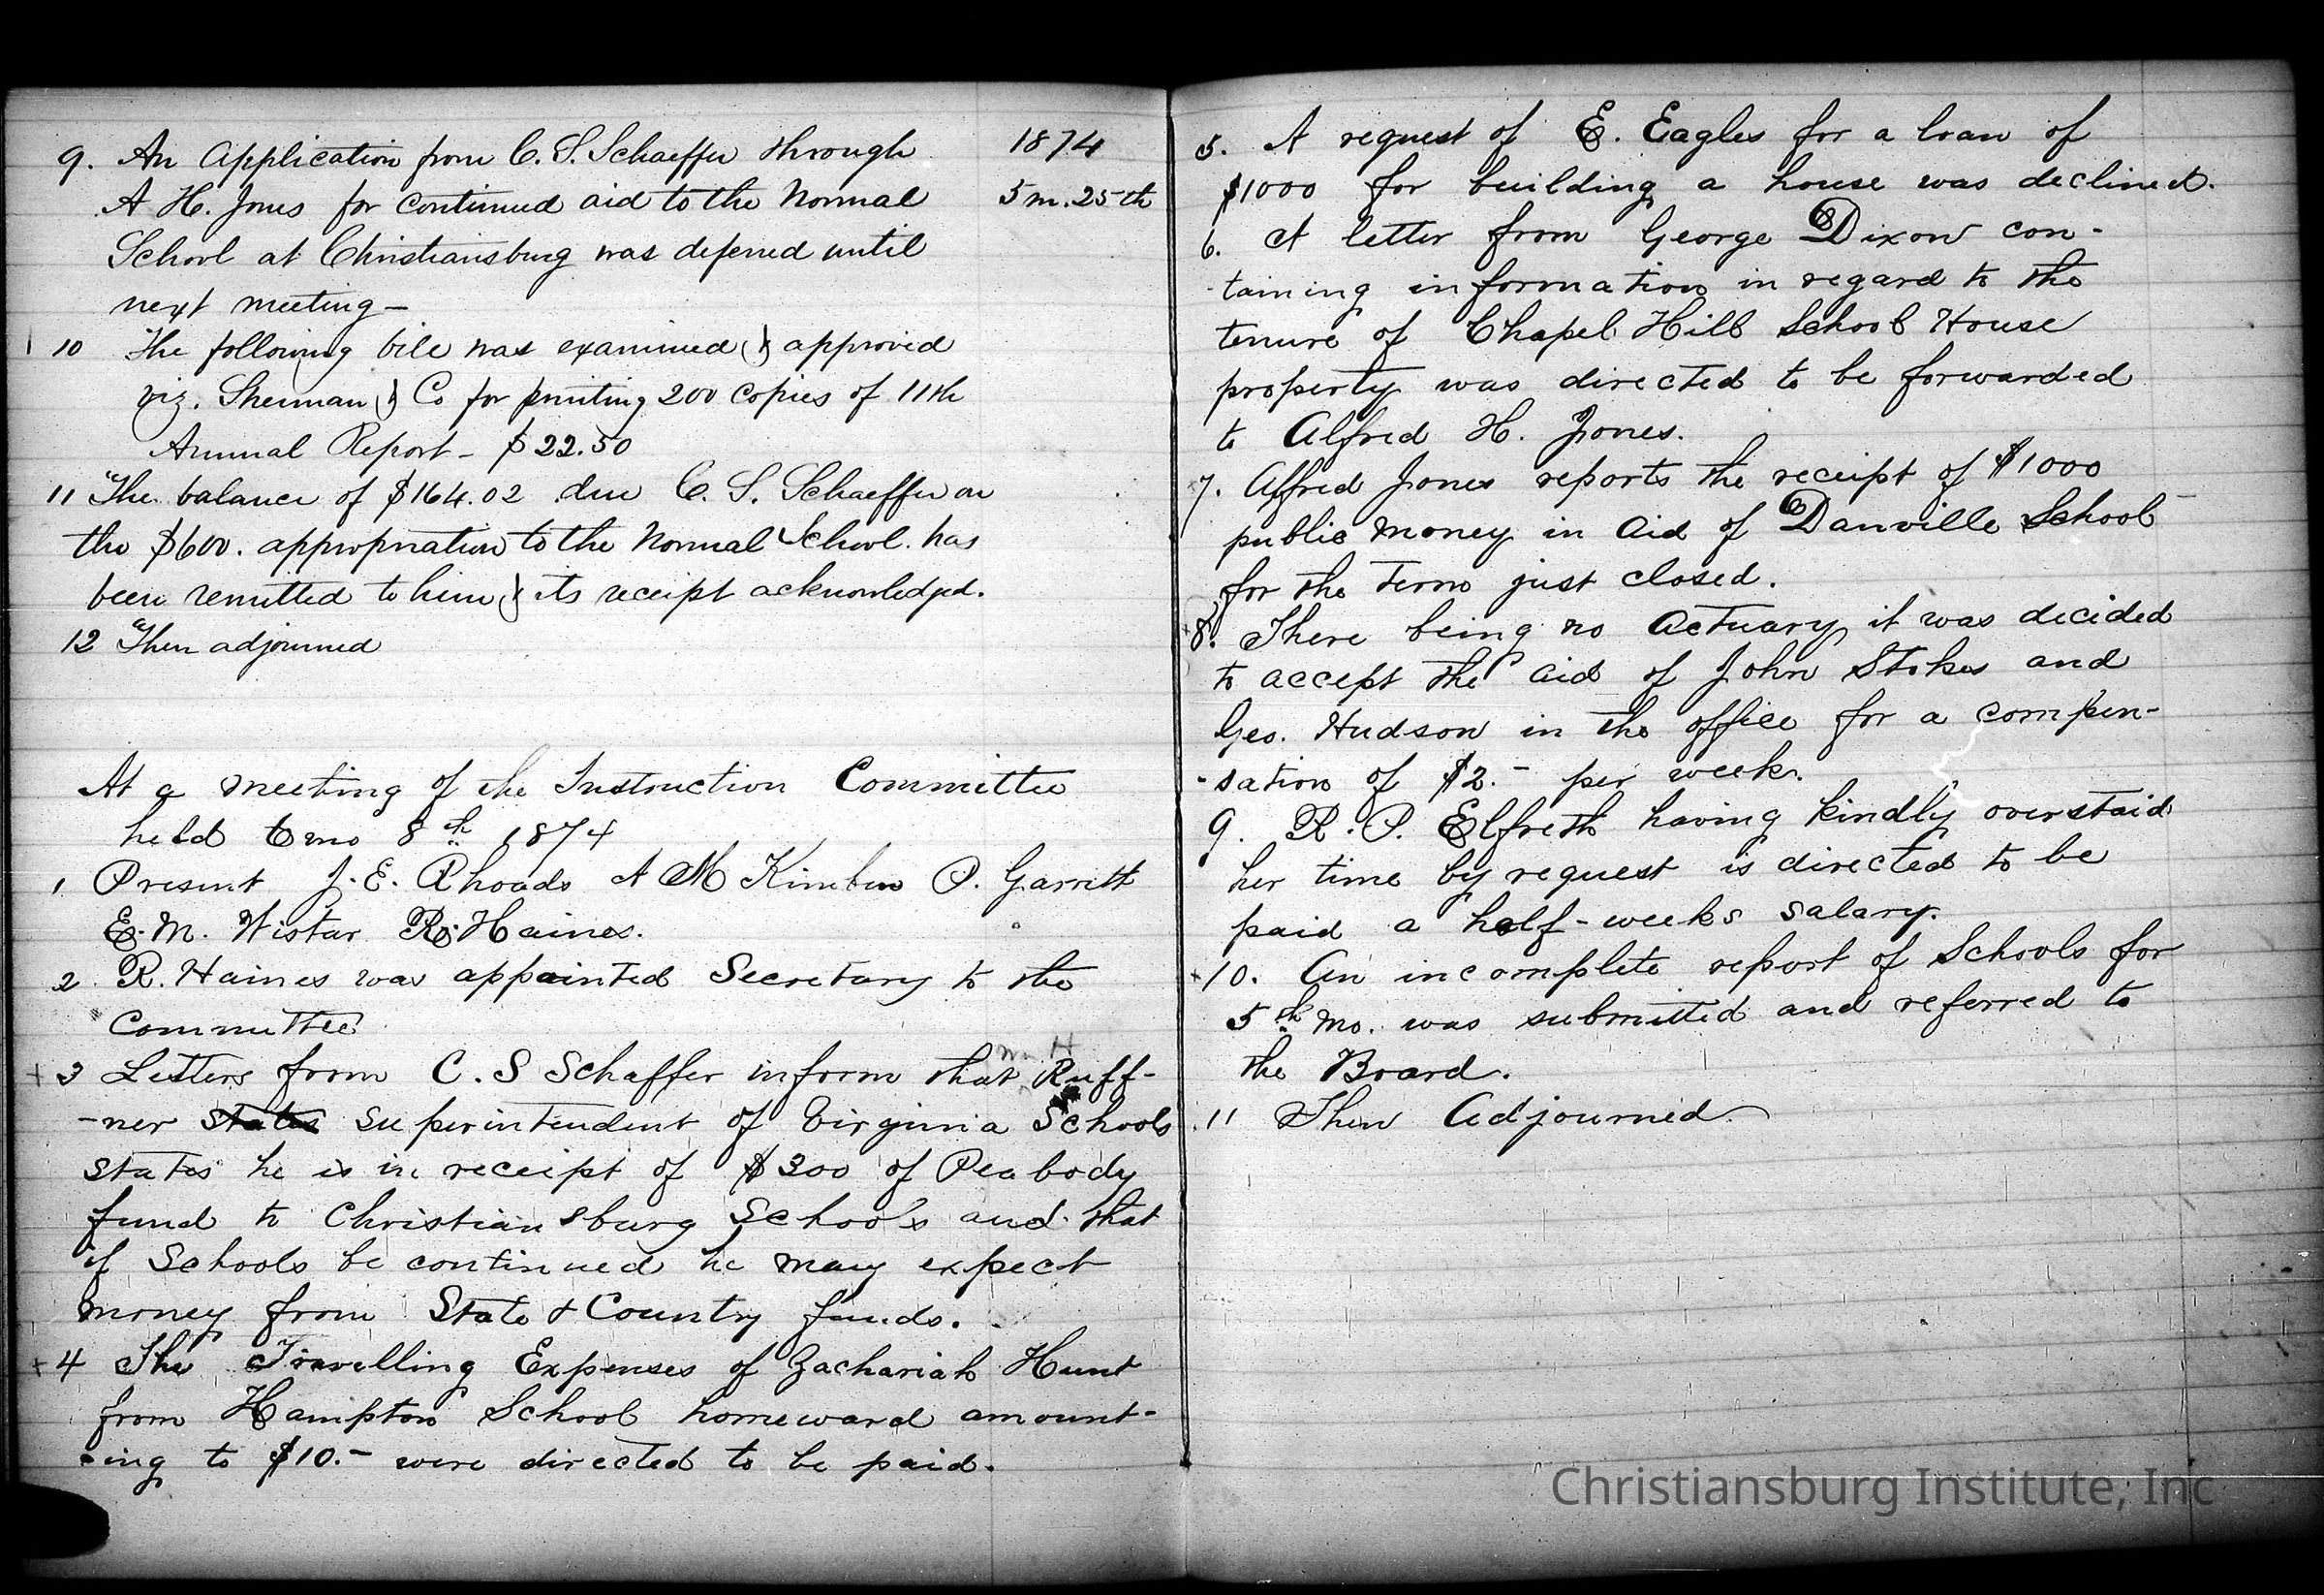 1874
5m. 25th
9. An Application from C. S. Schaeffer through
A H. Jones for continued aid to the Normal
School at Christiansburg was deferred until
next meeting —
10 The following bill was examined & approved
viz. Sherman & Co for printing 200 copies of 11th
Annual Report — $22.50
11 The balance of $164.02 due C. S. Schaeffer on
the $600. appropriation to the Normal School. has
been remitted to him & its receipt acknowledged.
12 Then adjourned
At a meeting of the Instruction Committee
held 6mo 8th 1874
1 Present J. E. Rhoads A M Kimber P. Garrett
E. M. Wistar R. Haines.
2 R. Haines was appointed Secretary to the
Committee
+ 3 Letters from C. S Schaffer inform that Wm H Ruff-
-ner states superintendent of Virginia Schools
states he is in receipt of $300 of Peabody
fund to Christiansburg Schools and that
if Schools be continued he may expect
money from State & Country funds.
+ 4 The Travelling Expenses of Zachariah Hunt
from Hampton School homeward amount-
-ing to $10.- were directed to be paid.
5. A request of E. Eagles for a loan of
$1000 for building a house was declined.
6. A letter from George Dixon con-
-taining information in regard to the
tenure of Chapel Hill School House
property was directed to be forwarded
to Alfred H. Jones.
+7. Alfred Jones reports the receipt of $1000
public money in aid of Danville School
for the term just closed.
+8. There being no Actuary it was decided
to accept the aid of John Stokes and
Geo. Hudson in the office for a compen-
-sation of $2.- per week.
9. R. P. Elfreth having kindly overstaid
her time by request is directed to be
paid a half-weeks salary.
+10. An incomplete report of Schools for
5th Mo. was submitted and referred to
the Board.
11 Then Adjourned
Christiansburg Institute, Inc